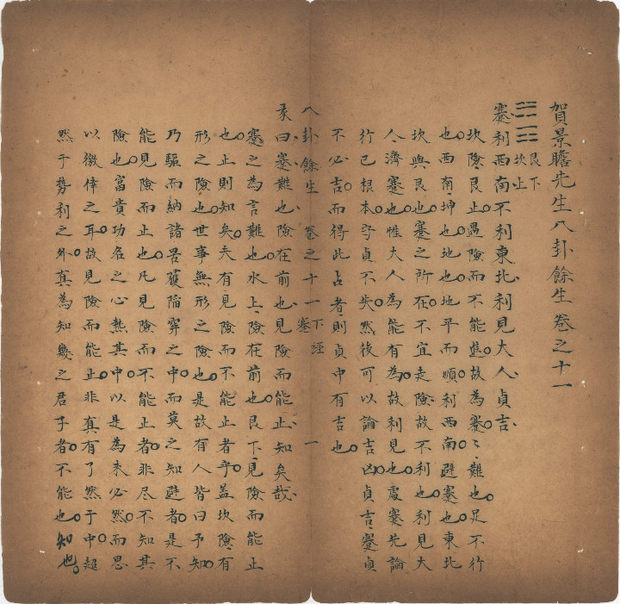 賀景瞻先生八卦餘生卷之十一
艮下
坎上
蹇利西南不利東北利見大人貞吉
坎險艮止遇險而不能進故為蹇〻難也足不行
也西南坤也地也地平而順利西南避蹇也東北
坎與艮也蹇之所在不宜走險故不利也利見大
人濟蹇也惟大人為能有為故利見也處蹇先論
行己根本守貞不失然後可以論吉凶貞吉蹇貞
不必吉而得此占者則貞中有吉也
八卦餘生 卷之十一 下經 蹇 一
彖曰蹇難也險在前也見險而能止知矣哉
蹇之為言難也水上險在前也艮下見險而能止
也止則知矣夫有見險而不能止者乎蓋坎險有
形之險也世事無形之險也是故有人皆曰予知
乃驅而納諸罟擭陷穽之中而莫之知避者是不
能見險而止也凡見險而不能止者非尽不知其
險也富貴功名之心熱其中以是為未必然而思
以徼倖之耳故見險而能止非真有了然于中超
然于勢利之外真為知幾之君子者不能也知也